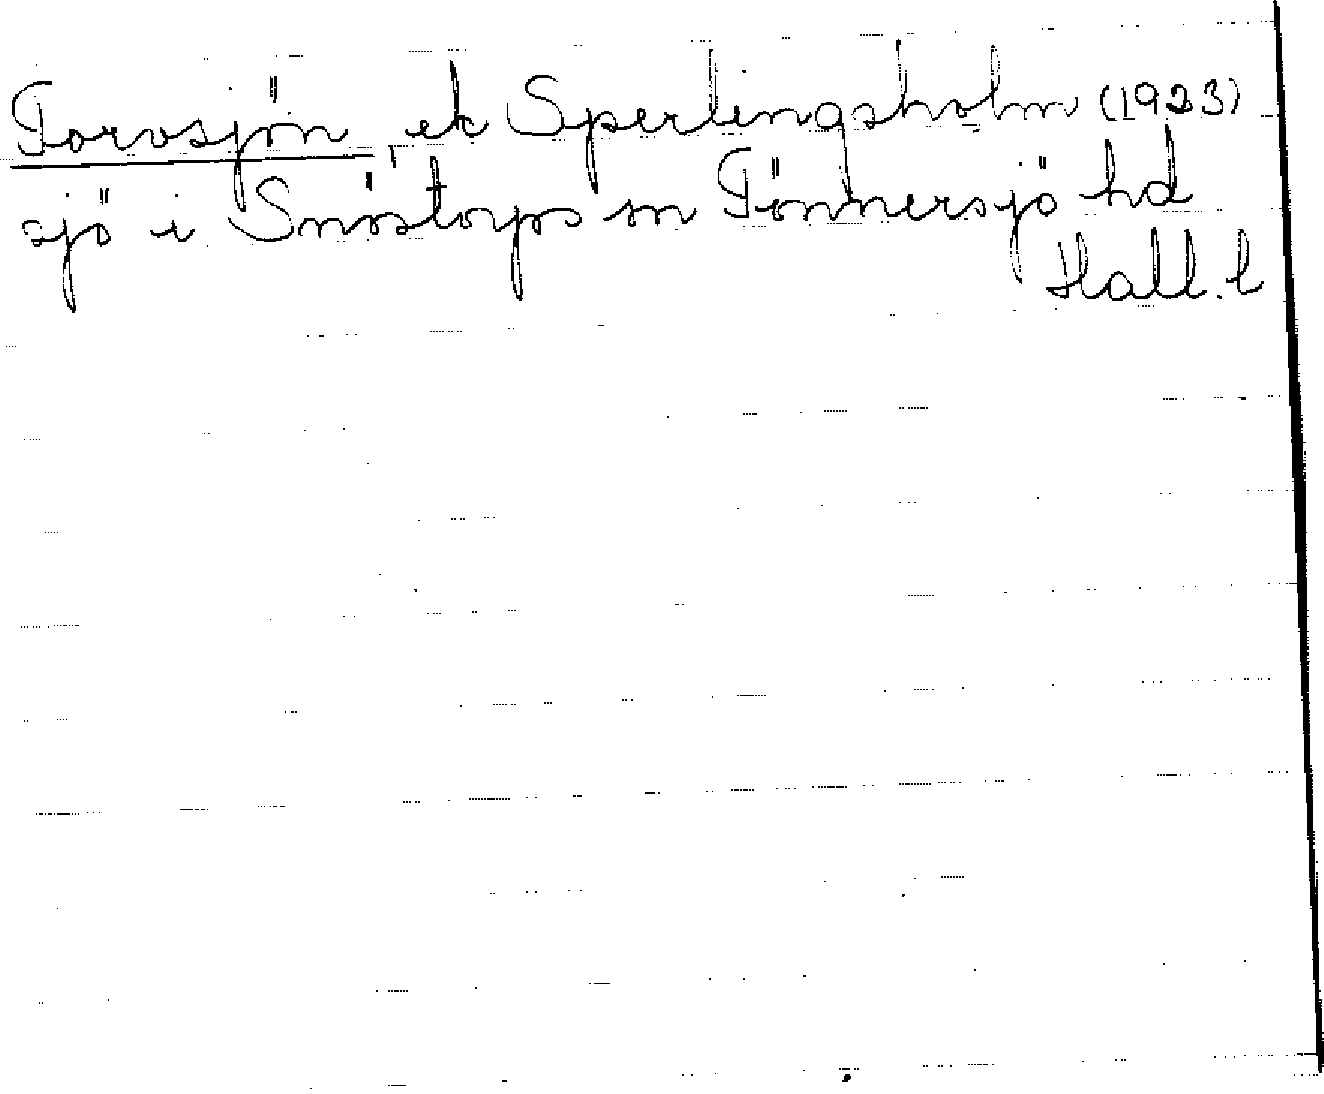 Torvsjön, ek Sperlingsholm (1923)
sjö i Snöstorps sn Tönnersjö hd
Hall. l